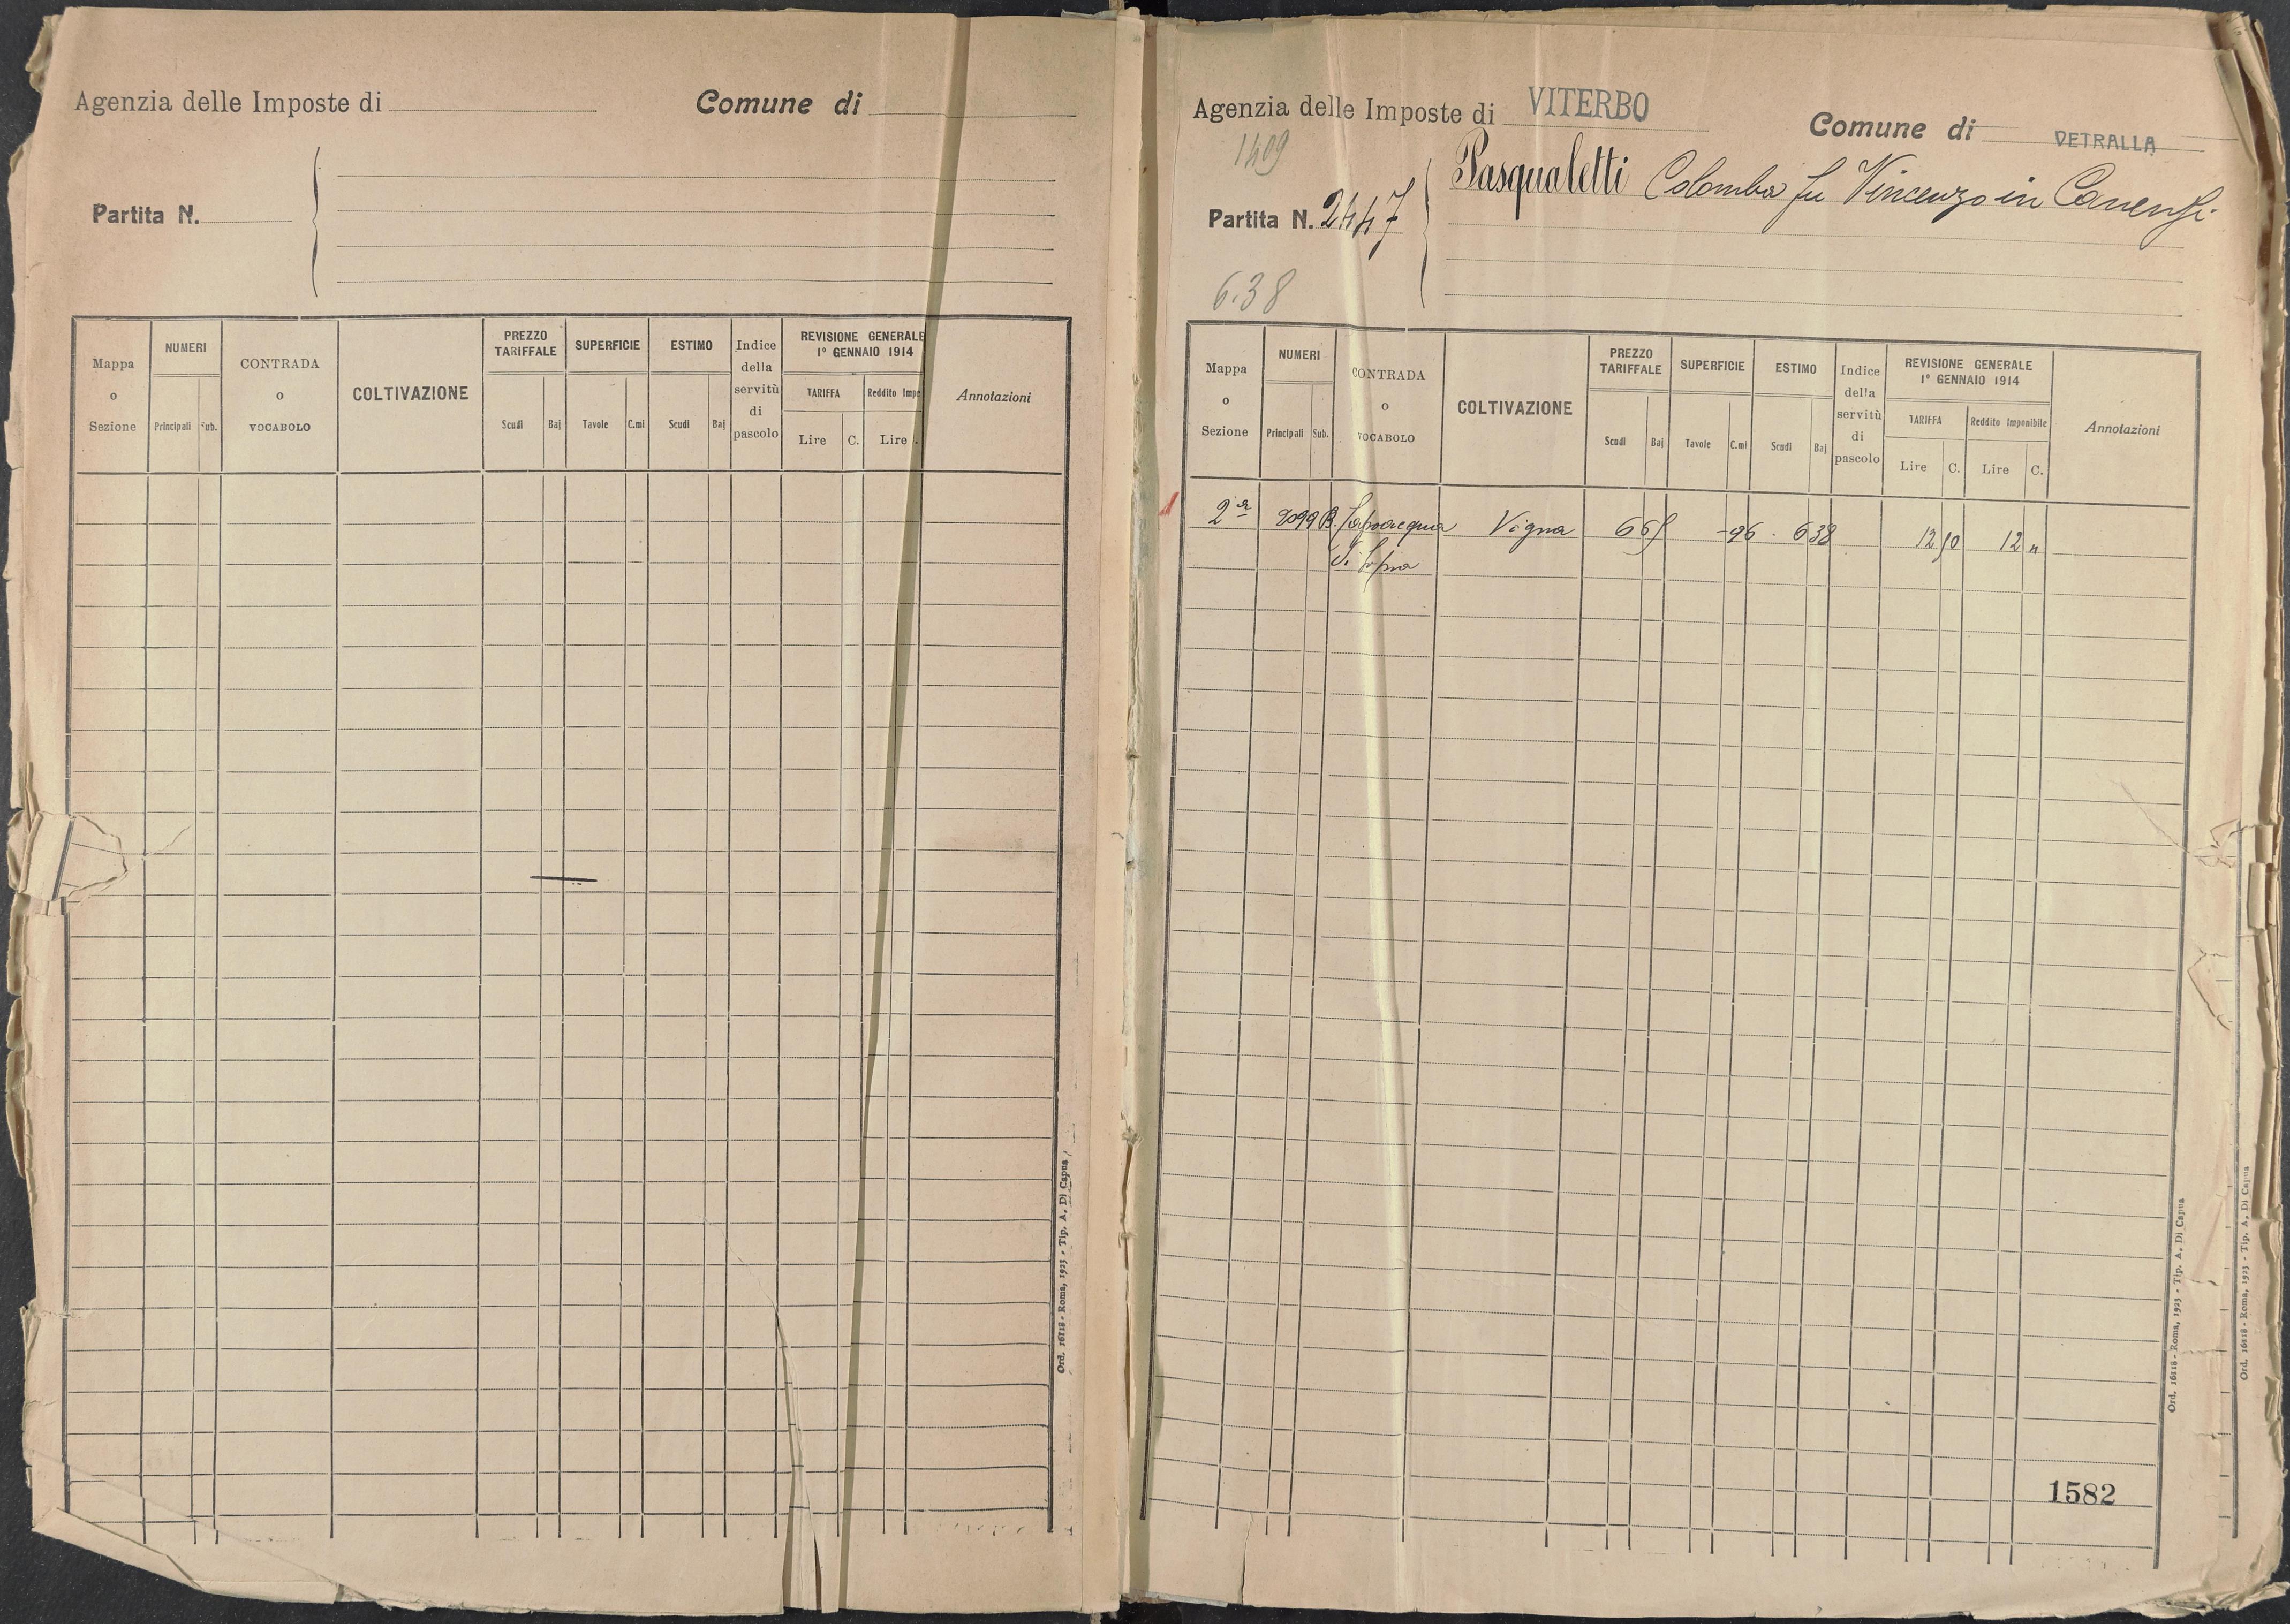 Agenzia delle Imposte di
Comune di
Partita N.
Mappa o Sezione
NUMERI
Principali
Sub.
CONTRADA o VOCABOLO
COLTIVAZIONE
PREZZO TARIFFALE
Scudi
Baj
SUPERFICIE
Tavole
C.mi
ESTIMO
Scudi
Baj
Indice della servitù di pascolo
REVISIONE GENERALE
1° GENNAIO 1914
TARIFFA
Lire
C.
Reddito Impo
Lire
Annotazioni
Ord. 16118 - Roma, 1923 - Tip. A. Di Capua
Agenzia delle Imposte di VITERBO
Comune di VETRALLA
1409
Partita N. 2447
Pasqualetti Colomba fu Vincenzo in Canensi
6.38
Mappa o Sezione
NUMERI
Principali
Sub.
CONTRADA o VOCABOLO
COLTIVAZIONE
PREZZO TARIFFALE
Scudi
Baj
SUPERFICIE
Tavole
C.mi
ESTIMO
Scudi
Baj
Indice della servitù di pascolo
REVISIONE GENERALE
1° GENNAIO 1914
TARIFFA
Lire
C.
Reddito Imponibile
Lire
C.
Annotazioni
2ª Vigna 665 -96 638 12 50 12 "
1582
Ord. 16118 - Roma, 1923 - Tip. A. Di Capua
Ord. 16118 - Roma, 1923 - Tip. A. Di Capua